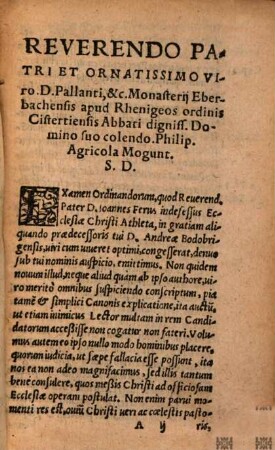 REVERENDO PA-
TRI ET ORNATISSIMO VI-
ro. D. Pallanti, &c. Monasterij Eber-
bachensis apud Rhenigeos ordinis
Cistertiensis Abbari digniss. Do-
mino suo colendo. Philip.
Agricola Mogunt.
S. D.
EXamen Ordinandorum, quod Reverend.
Pater D. Ioannes Ferus indefessus Ec-
clesiæ Christi Athleta, in gratiam ali-
quando prædecessoris tui D. Andreæ Bodobri-
gensis, viri cum viveret optimi, congesserat, denuo
sub tui nominis auspicio, emittimus. Non quidem
novum illud, neque aliud quàm ab ipso authore, vi-
ro meritò omnibus suspiciendo conscriptum, pia
tamē & simplici Canonis explicatione, ita auctū,
ut etiam inimicus Lector multam in rem Candi-
datorum accessisse non cogatur non fateri. Volu-
mus autem eo ipso nullo modo hominibus placere,
quorum iudicia, ut sæpe fallacia esse possint, ita
nos ea non adeo magnifacimus, sed illis tantum
bene consulere, quos messis Christi ad officiosam
Ecclesiæ operam postulat. Non enim parvi mo-
menti res est, oviū Christi veri ac cœlestis pasto-
A ij
ris,